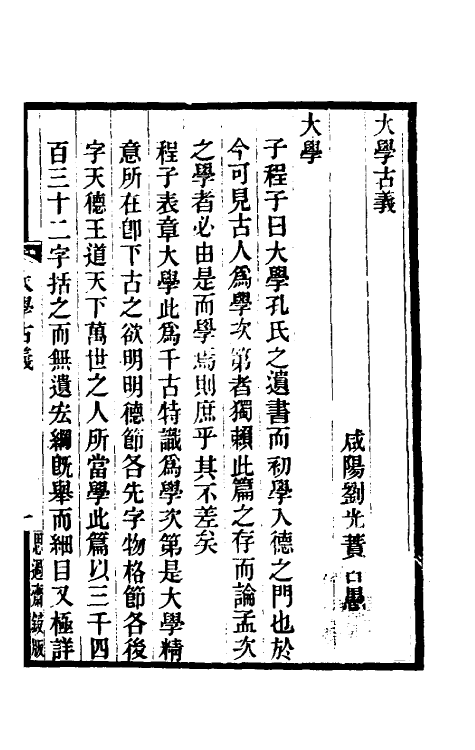 大學古義
咸陽劉光蕡古愚
大學
子程子曰大學孔氏之遺書而初學入德之門也於
今可見古人爲學次第者獨賴此篇之存而論孟次
之學者必由是而學焉則庶乎其不差矣
程子表章大學此爲千古特識爲學次第是大學精
意所在卽下古之欲明明德節各先字物格節各後
字天德王道天下萬世之人所當學此篇以三千四
百三十二字括之而無遺宏綱旣舉而細目又極詳
大學古義
一
思過齋鋟版